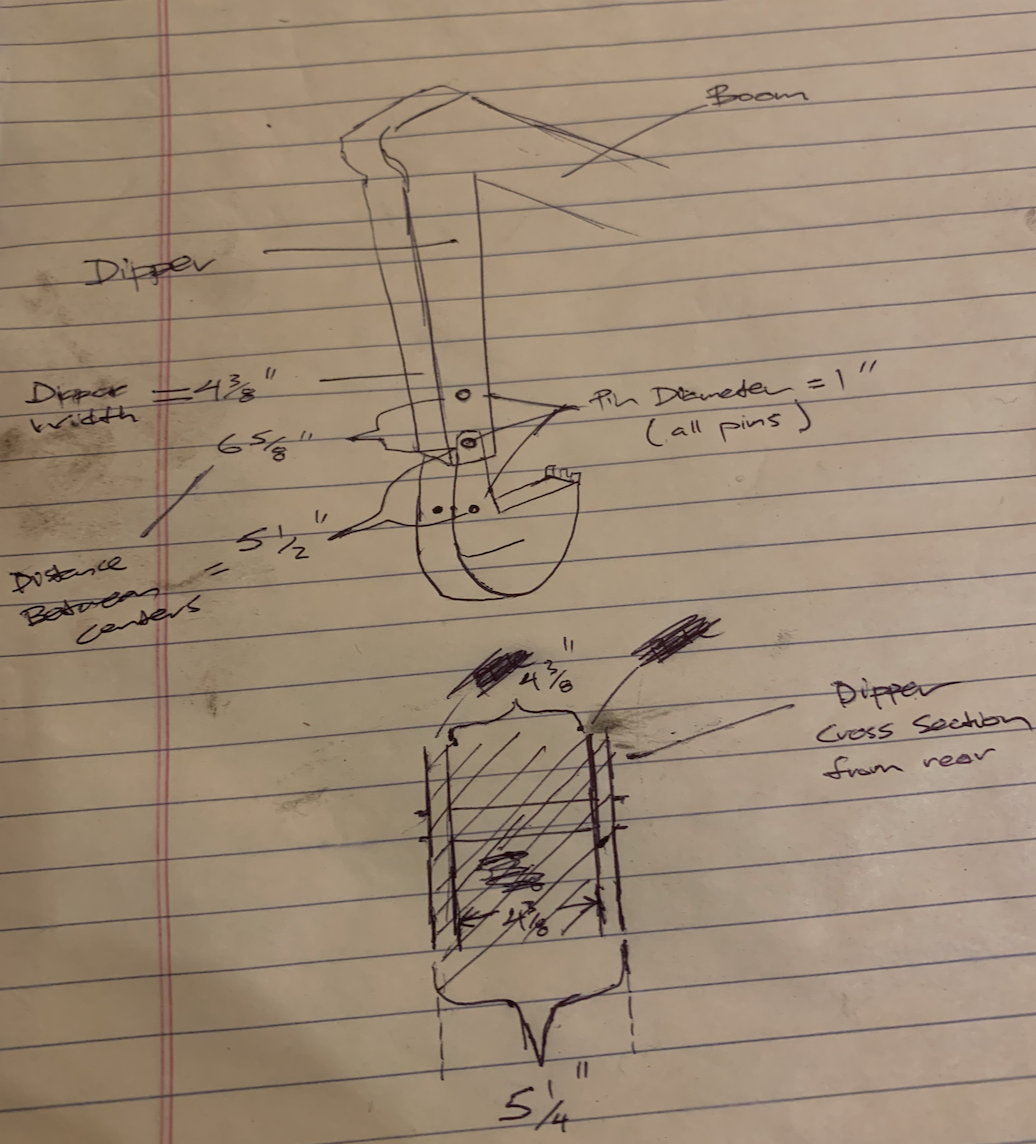 Boom
Dipper
Dipper = 4 3/8"
width
Pin Diameter = 1"
(all pins)
6 5/8"
5 1/2"
Distance =
Between
centers
4 3/8"
Dipper
Cross Section
from rear
4 3/8
5 1/4"